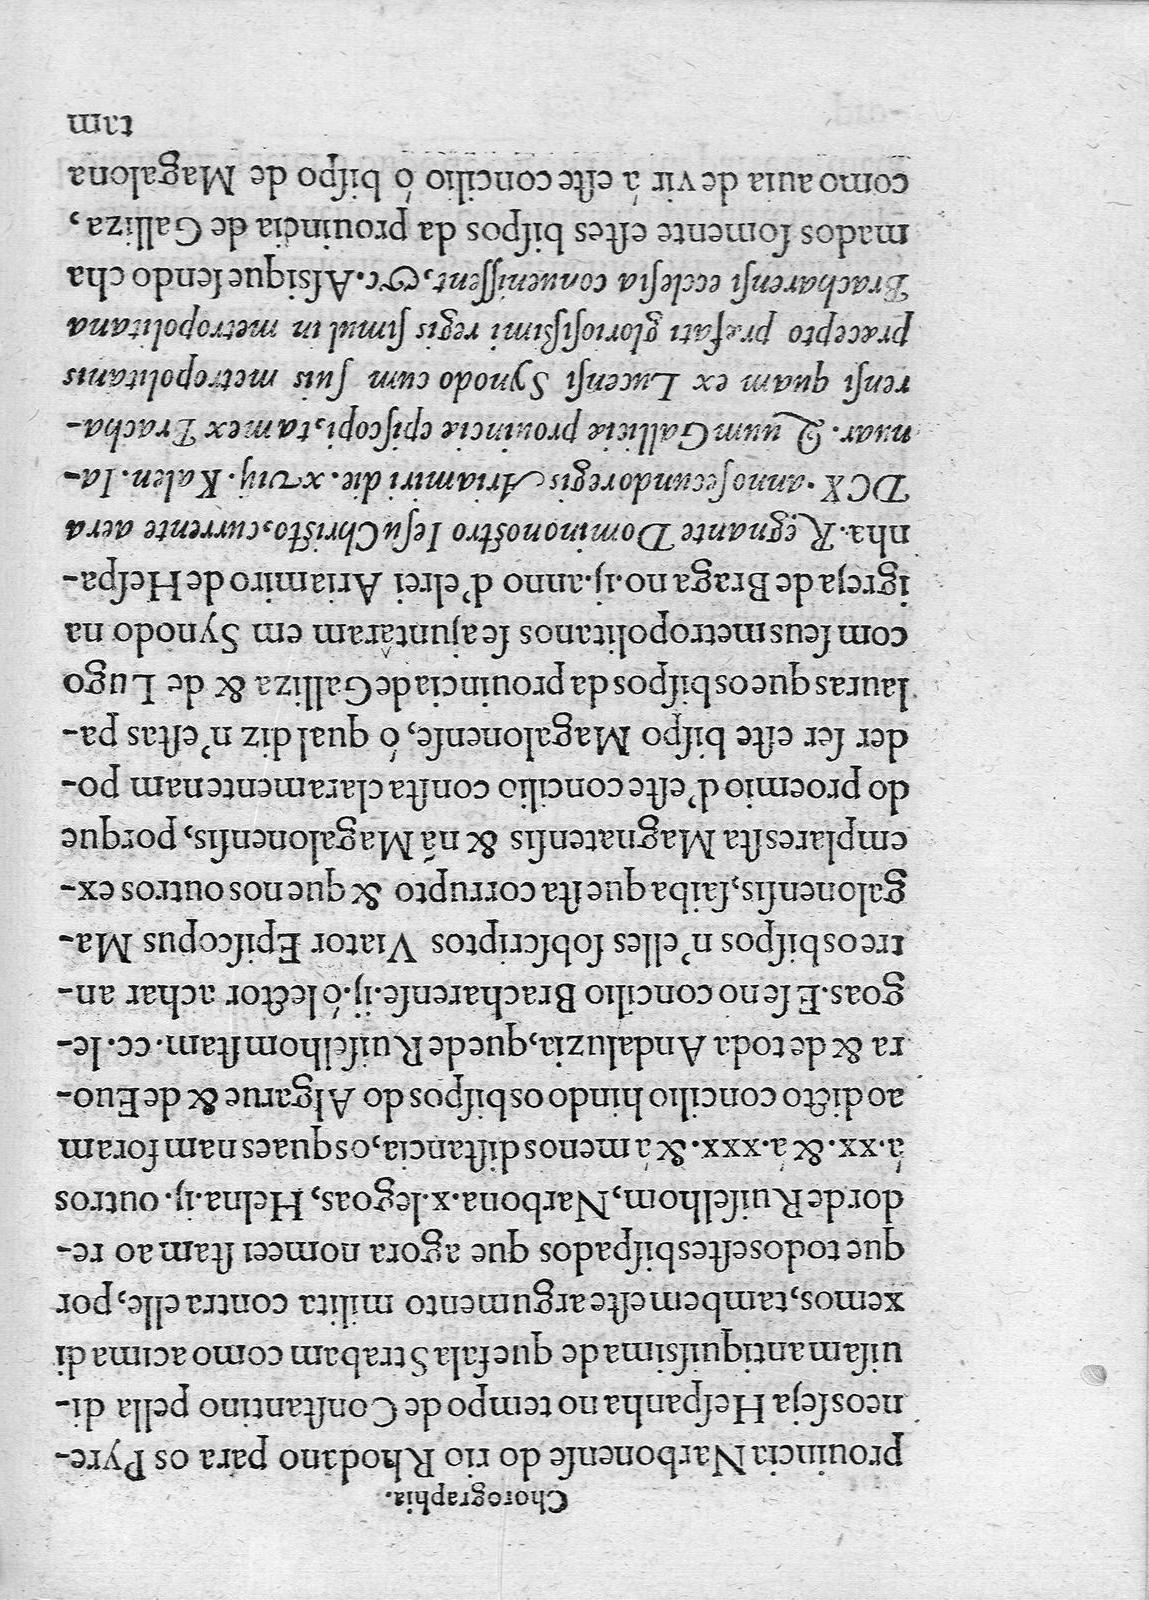 Chorographia.
prouincia Narbonenſe do rio Rhodano pára os Pyre-
neos ſeja Heſpanha no tempo de Conſtantino pella di-
uiſam antiquiſsima de que fala Strabam como acima di
xemos, tambem eſte argumento milita contra elle, por
que todos eſtes biſpados que agora nomeei ſtam ao re-
dor de Ruiſelhom, Narbona .x. legoas, Helna .ij. outros
á .xx. & á .xxx. & á menos diſtancia, os quaes nam foram
ao dicto concilio hindo os biſpos do Algarue & de Euo-
ra & de toda Andaluzia, que de Ruiſelhom ſtam .cc. le-
goas. E ſe no concilio Bracharenſe .ij. ó lector achar an-
tre os biſpos n'elles ſobſcriptos Viator Epiſcopus Ma-
galonenſis, ſaiba que ſta corrupto & que nos outros ex-
emplares ſta Magnatenſis & ná Magalonenſis, porque
do proemio d'eſte concilio conſta claramente nam po-
der ſer eſte biſpo Magalonenſe, ó qual diz n'eſtas pa-
lauras que os biſpos da prouincia de Galliza & de Lugo
com ſeus metropolitanos ſe ajuntáram em Synodo na
igreja de Braga no .ij. anno d'elrei Ariamiro de Heſpa-
nha. Regnante Domino noſtro Ieſu Chriſto, currente aera
DCX. anno ſecundo regis Ariamiri die .xvij. Kalen. Ia-
nuar. Quum Galliciæ prouinciæ epiſcopi, tam ex Bracha-
renſi quam ex Lucenſi Synodo cum ſuis metropolitanis
præcepto præfati glorioſiſsimi regis ſimul in metropolitana
Bracharenſi eccleſia conueniſſent, &c. Aſsi que ſendo cha
mados ſomente eſtes biſpos da prouincia de Galliza,
como auia de vir á eſte concilio ó biſpo de Magalona
tam